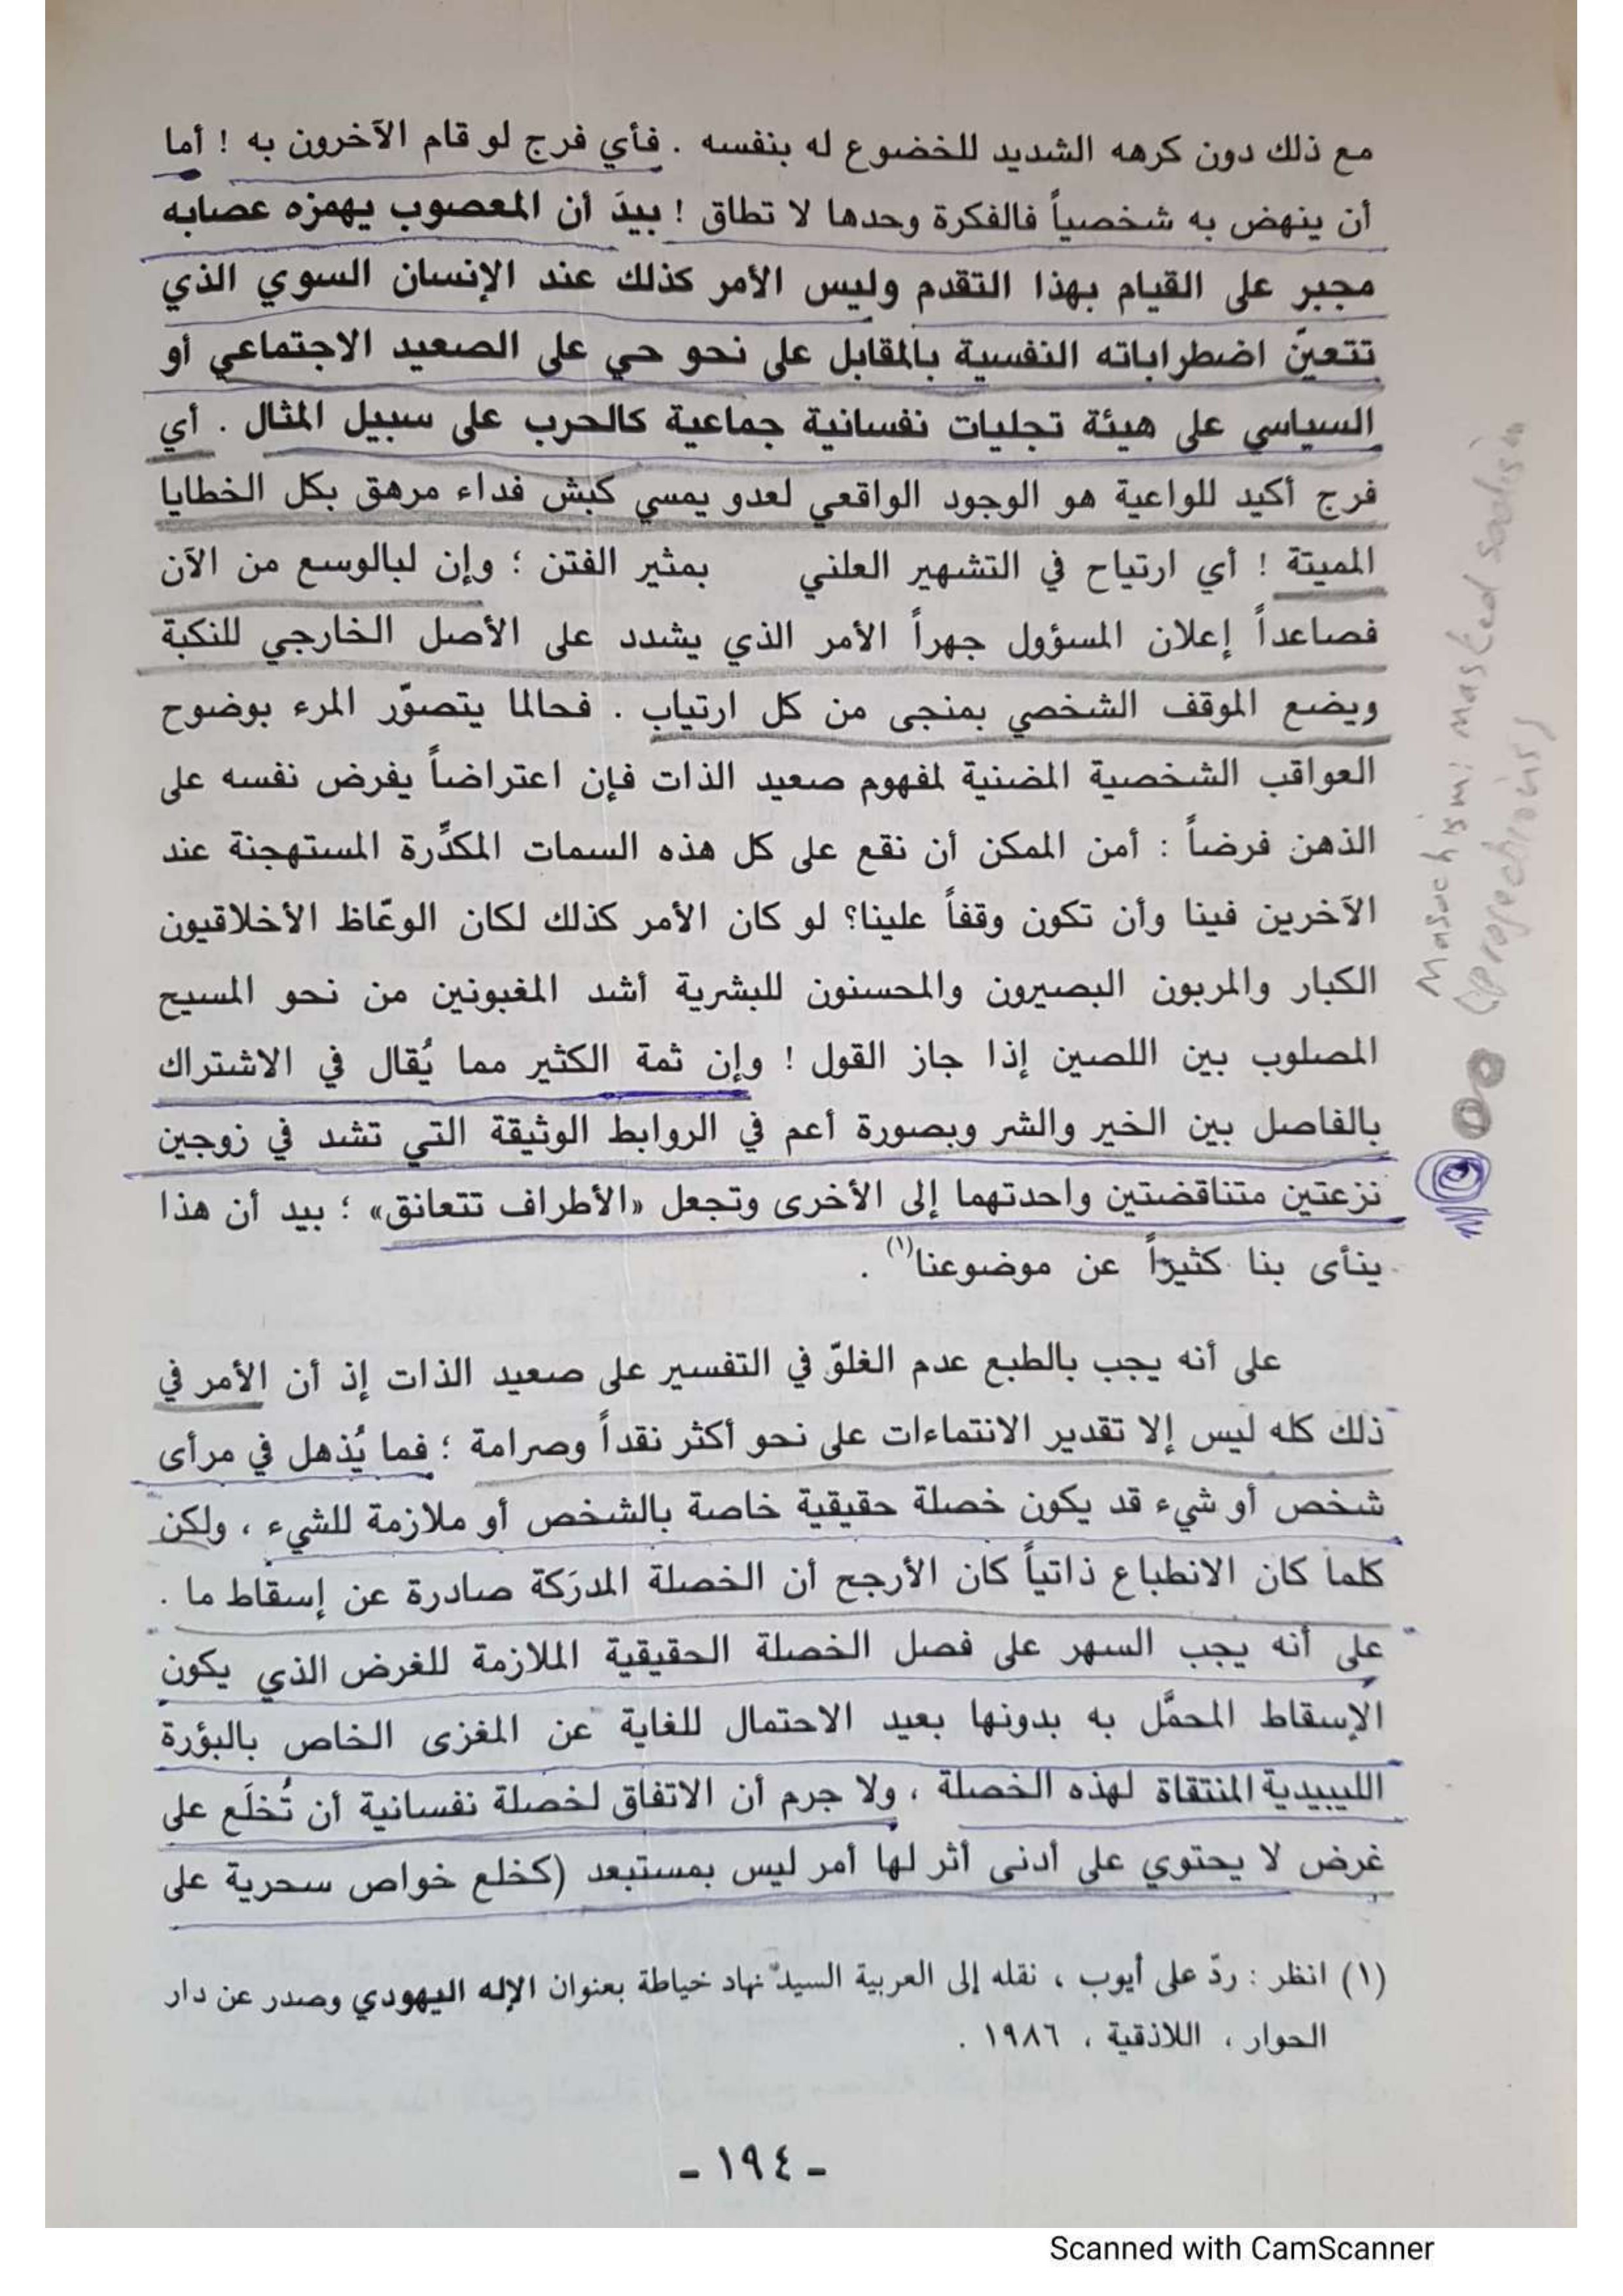 مع ذلك دون كرهه الشديد للخضوع له بنفسه . فأي فرج لو قام الآخرون به ! أما
أن ينهض به شخصياً فالفكرة وحدها لا تطاق ! بيدَ أن المعصوب يهمزه عصابه
مجبر على القيام بهذا التقدم وليس الأمر كذلك عند الإنسان السوي الذي
تتعيّن اضطراباته النفسية بالمقابل على نحو حي على الصعيد الاجتماعي أو
السياسي على هيئة تجليات نفسانية جماعية كالحرب على سبيل المثال . أي
فرج أكيد للواعية هو الوجود الواقعي لعدو يمسي كبش فداء مرهق بكل الخطايا
المميتة ! أي ارتياح في التشهير العلني بمثير الفتن ؛ وإن لبالوسع من الآن
فصاعداً إعلان المسؤول جهراً الأمر الذي يشدد على الأصل الخارجي للنكبة
ويضع الموقف الشخصي بمنجى من كل ارتياب . فحالما يتصوّر المرء بوضوح
العواقب الشخصية المضنية لمفهوم صعيد الذات فإن اعتراضاً يفرض نفسه على
الذهن فرضاً : أمن الممكن أن نقع على كل هذه السمات المكدِّرة المستهجنة عند
الآخرين فينا وأن تكون وقفاً علينا؟ لو كان الأمر كذلك لكان الوعّاظ الأخلاقيون
الكبار والمربون البصيرون والمحسنون للبشرية أشد المغبونين من نحو المسيح
المصلوب بين اللصين إذا جاز القول ! وإن ثمة الكثير مما يُقال في الاشتراك
بالفاصل بين الخير والشر وبصورة أعم في الروابط الوثيقة التي تشد في زوجين
نزعتين متناقضتين واحدتهما إلى الأخرى وتجعل «الأطراف تتعانق» ؛ بيد أن هذا
ينأى بنا كثيراً عن موضوعنا(١) .
على أنه يجب بالطبع عدم الغلوّ في التفسير على صعيد الذات إذ أن الأمر في
ذلك كله ليس إلا تقدير الانتماءات على نحو أكثر نقداً وصرامة ؛ فما يُذهل في مرأى
شخص أو شيء قد يكون خصلة حقيقية خاصة بالشخص أو ملازمة للشيء ، ولكن
كلما كان الانطباع ذاتياً كان الأرجح أن الخصلة المدرَكة صادرة عن إسقاط ما .
على أنه يجب السهر على فصل الخصلة الحقيقية الملازمة للغرض الذي يكون
الإسقاط المحمَّل به بدونها بعيد الاحتمال للغاية عن المغزى الخاص بالبؤرة
الليبيدية المنتقاة لهذه الخصلة ، ولا جرم أن الاتفاق لخصلة نفسانية أن تُخلَع على
غرض لا يحتوي على أدنى أثر لها أمر ليس بمستبعد (كخلع خواص سحرية على
(١) انظر : ردّ على أيوب ، نقله إلى العربية السيد نهاد خياطة بعنوان الإله اليهودي وصدر عن دار
الحوار ، اللاذقية ، ١٩٨٦ .
- ١٩٤ -
Masochism: masked sadism
(projections)
Scanned with CamScanner